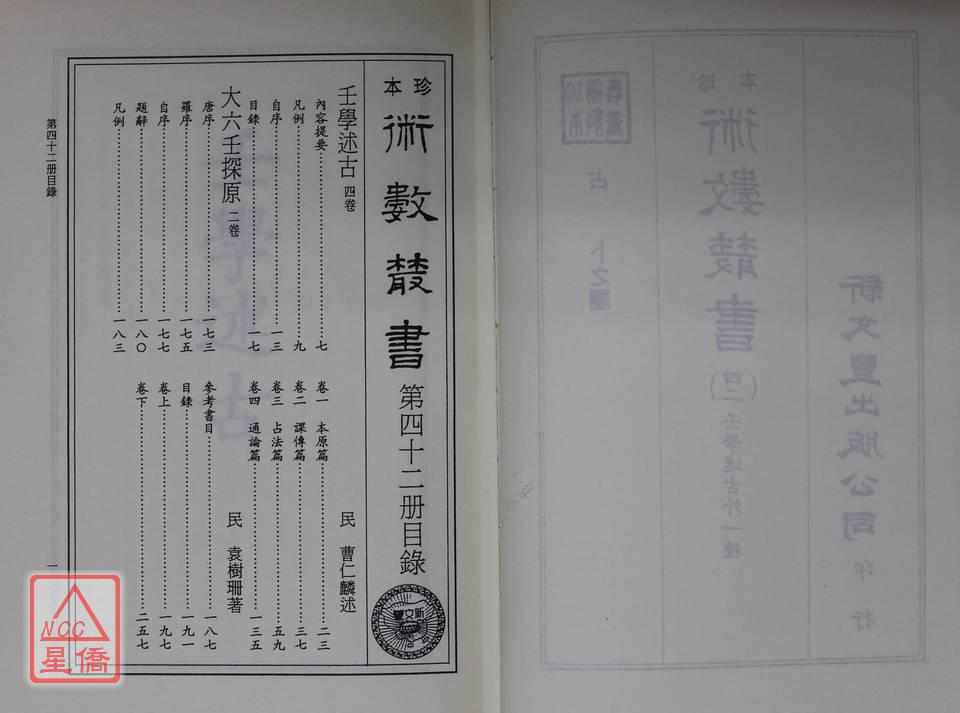 珍本 術數叢書 第四十二册目錄
新文豐
壬學述古 四卷 民 曹仁麟述
內容提要……七
凡例……九
自序……一三
目錄……一七
卷一 本原篇……二三
卷二 課傳篇……三七
卷三 占法篇……五九
卷四 通論篇……一三五
大六壬探原 二卷 民 袁樹珊著
唐序……一七三
羅序……一七五
自序……一七七
題辭……一八〇
凡例……一八三
參考書目……一八七
目錄……一九一
卷上……一九七
卷下……二五七
第四十二册目錄
一
NCC
星僑
珍本 術數叢書 (四二) 壬學述古外一種
占卜之屬
新文豐出版公司 印行
壬學述古